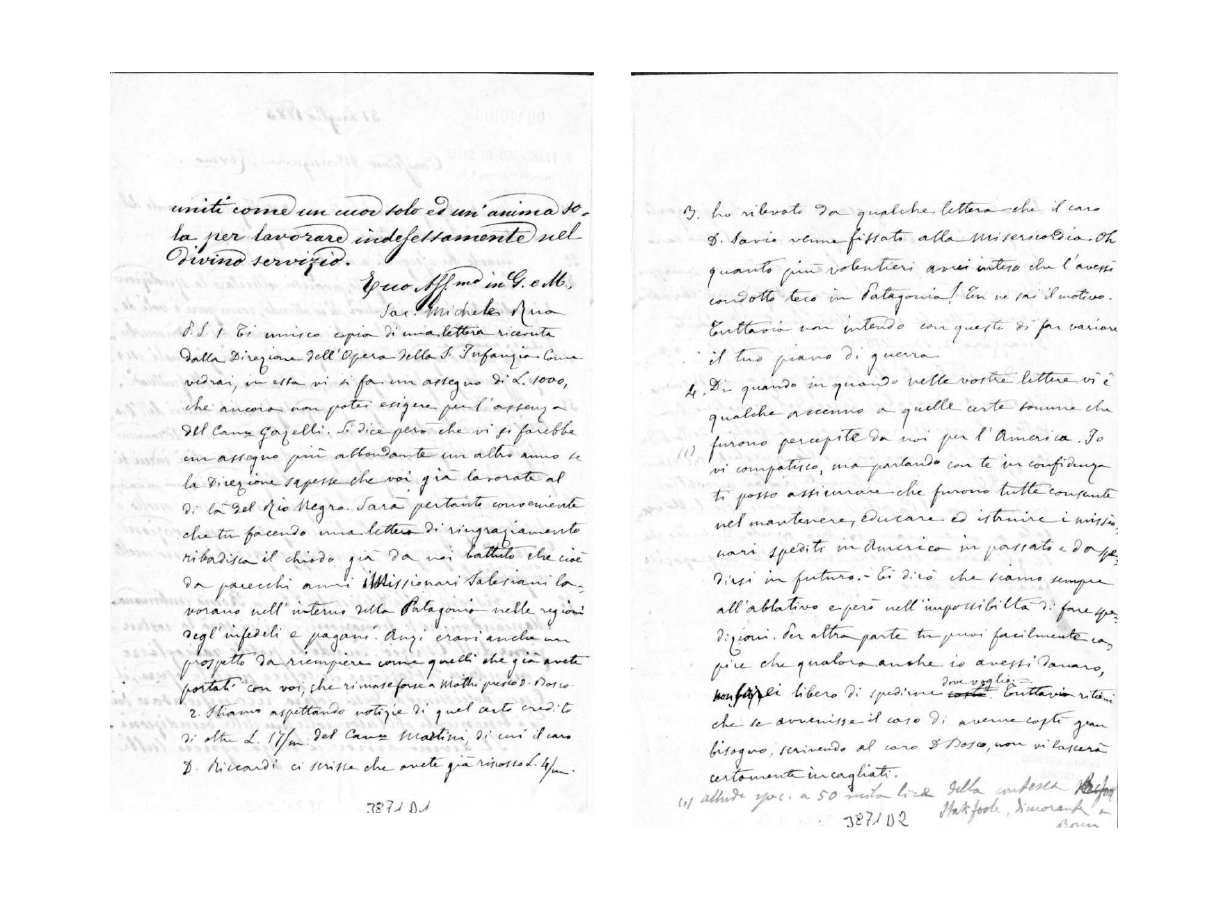 uniti come un cuor solo ed un'anima so-
la per lavorare indefessamente nel
divino servizio.
Tuo Aff.mo in G. e M.
Sac. Michele Rua
P.S. 1. Ti unisco copia di una lettera ricevuta
dalla Direzione dell'Opera della S. Infanzia. Come
vedrai, in essa vi si fa un assegno di L. 1000,
che ancora non potei esigere per l'assenza
del Can.co Gazelli. Si dice però che vi si farebbe
un assegno più abbondante un altro anno se
la Direzione sapesse che voi già lavorate al
di là del Rio Negro. Sarà pertanto conveniente
che tu facendo una lettera di ringraziamento
ribadisca il chiodo già da noi battuto che cioè
da parecchi anni i Missionari Salesiani la-
vorano nell'interno della Patagonia nelle regioni
degl'infedeli e pagani. Anzi eravi anche un
prospetto da riempiere come quelli che già avete
portati con voi, che rimase forse a Mathi presso D. Bosco.
2. Stiamo aspettando notizie di quel certo credito
di oltre L. 17/m. del Can.co Martini, di cui il caro
D. Riccardi ci scrisse che avete già riscosso L. 4/m.
3871 D1
3. ho rilevato da qualche lettera che il caro
D. Savio venne fissato alla Misericordia. Oh
quanto più volentieri avrei inteso che l'avessi
condotto teco in Patagonia! Tu ne sai il motivo.
Tuttavia non intendo con questo di far variare
il tuo piano di guerra
4. Di quando in quando nelle vostre lettere vi è
qualche accenno a quelle certe somme che
furono percepite da noi per l'America. Io
(1) vi compatisco, ma parlando con te in confidenza
ti posso assicurare che furono tutte consunte
nel mantenere, educare ed istruire i missio-
nari spediti in America in passato e da spe-
dirsi in futuro. - Ti dirò che siamo sempre
all'ablativo e però nell'impossibiltà di fare spe-
dizioni. Per altra parte tu puoi facilmente ca-
pire che qualora anche io avessi danaro,
dove voglio
non sarei libero di spedirne costì. Tuttavia ritieni
che se avvenisse il caso di averne costì gran
bisogno, scrivendo al caro D. Bosco, non vi lascerà
certamente incagliati.
(1) allude spec. a 50 mila lire della contessa
Stakpoole, dimorante a
Roma
3871 D2